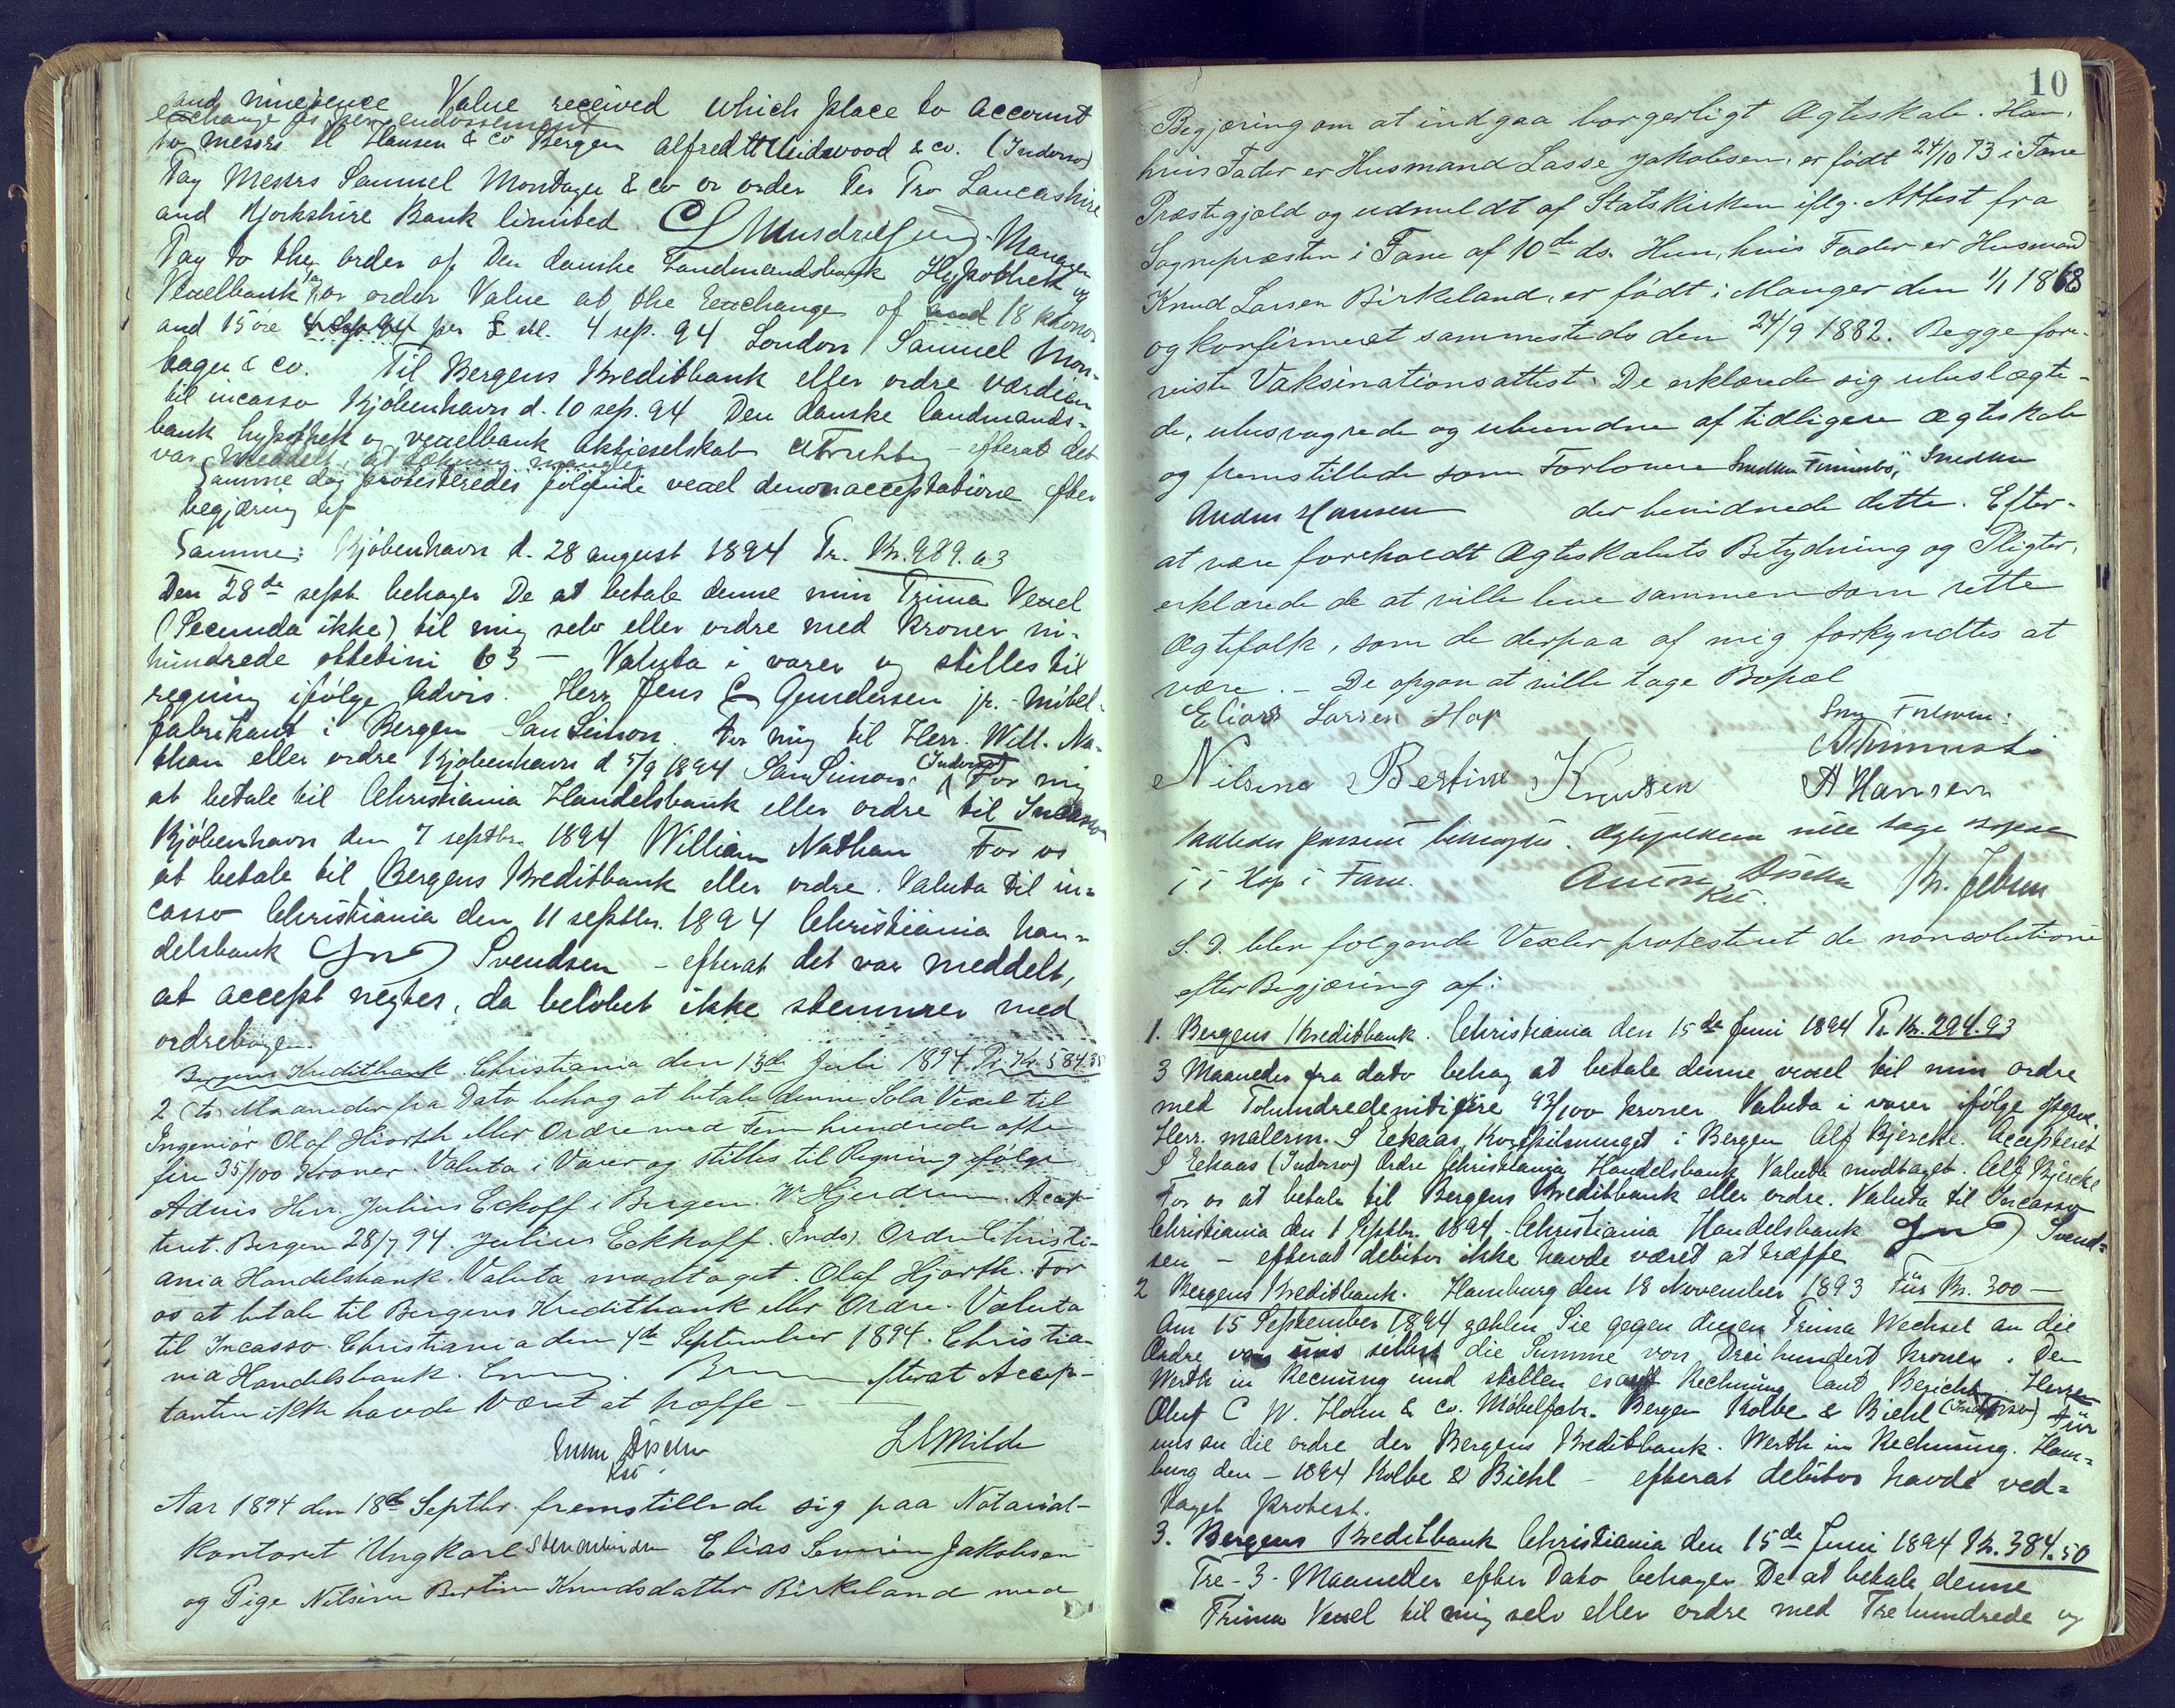 and ninepence Value received which place to account
exchange as per endossement
to Messrs H Hansen & Co Bergen Alfred & co. (Indorso)
Pay Messrs Samuel Montagu & co or order Per Pro Lancashire
and Yorkshire Bank limited Manager
Pay to the order of Den danske Landmandsbank Hypothek og
Vexelbank or order Value at the Exchange of 18 kroner
and 15 øre 4 Sep. 94 per £ st. 4 sep. 94 London Samuel Mon-
tagu & co. Til Bergens Kreditbank eller ordre værdien
til incasso Kjøbenhavn d. 10 sep. 94 Den danske landmands-
bank hypothek og vexelbank Aktieselskab - efterat det
var meddelt, at dækning mangler
Samme dag protesteredes følgende vexel denonacceptatione efter
begjæring af
Samme: Kjøbenhavn d. 28 august 1894 Pr. Kr. 989.63
Den 28de sept behager De at betale denne min Prima Vexel
(Secunda ikke) til mig selv eller ordre med Kroner ni-
hundrede ottetini 63 - Valuta i varer og stilles til
regning ifølge Advis. Herr Jens Gundersen jr. - Møbel-
fabrikant i Bergen San Simon. For mig til Herr. Will. Na-
than eller ordre Kjøbenhavn d 5/9 1894 San Simon (Indorso) For mig
at betale til Christiania Handelsbank eller ordre til Incasso
Kjøbenhavn den 7 septbr. 1894 William Nathan For os
at betale til Bergens Kreditbank eller ordre. Valuta til in-
casso Christiania den 11 septbr. 1894 Christiania han-
delsbank Svendsen - efterat det var meddelt,
at accept negtes, da beløbet ikke stemmer med
ordrebogen.
Bergens Kreditbank. Christiania den 13de Juli 1894. Pr. Kr. 584.35
2 (to) Maaneder fra Dato behag at betale denne Sola Vexel til
Ingeniør Olaf Hjorth eller Ordre med Fem hundrede otte
fire 35/100 Kroner. Valuta i Varer og stilles til Regning ifølge
Advis Herr. Julius Eckoff i Bergen. W Hjerdrum. Accep-
teret. Bergen 28/7 94 Julius Eckhoff. Indo). Ordre Christi-
ania Handelsbank. Valuta modtaget. Olaf Hjorth. For
os at betale til Bergens Kreditbank eller Ordre. Valuta
til Incasso. Christiania den 4de September 1894. Christia-
nia Handelsbank. efterat Accep-
tanten ikke havde været at træffe -
LMilde
Kst
Aar 1894 den 18de Septbr. fremstillede sig paa Notarial-
kontoret Ungkarl Elias Jakobsen
og Pige Nilsine Bertine Knudsdatter Birkeland med
10
Begjæring om at indgaa borgerligt Ægteskab. Han,
hvis Fader er Husmand Lasse Jakobsen, er født 24/10 73 i Fane
Præstegjeld og udmeldt af Statskirken iflg. Attest fra
Sognepræsten i Fane af 10de ds. Hun, hvis Fader er Husmand
Knud Larsen Birkeland, er født i Manger den 1/1 1868
og konfirmeret sammesteds den 24/9 1882. Begge fore-
viste Vaksinationsattest. De erklærede sig ubeslægte-
de, ubesvogrede og ubundne af tidligere Ægteskab
og fremstillede som Forlovere Snedker Snedker
Anders Hansen der bevidnede dette. Efter-
at være foreholdt Ægteskabets Betydning og Pligter,
erklærede de at ville leve sammen som rette
Ægtefolk, som de derpaa af mig forkyndtes at
være. - De opgav at ville tage Bopæl
Elias Larsen Hop Som Forlovere:
Nilsine Bertine Knutsen A Hansen
passeret Ægtefolkene ville tage Bopæl
i Hop i Fane. Kst.
S. D. blev følgende Vexler protesteret de nonsolutione
efter Begjæring af:
1. Bergens Kreditbank. Christiania den 15de Juni 1894 Pr Kr. 294.93
3 Maaneder fra dato behag at betale denne vexel til min ordre
med Tohundredenitifire 93/100 kroner Valuta i varer ifølge opgave.
Herr. malerm. S Eekaas, i Bergen Alf Bjercke. Accepteret
S Eekaas (Indorso) Ordre Christiania Handelsbank Valuta modtaget. Alf Bjercke
For os at betale til Bergens Kreditbank eller ordre. Valuta til Incasso
Christiania den 1 Septbr. 1894. Christiania Handelsbank Svend-
sen - efterat debitor ikke havde været at træffe
2 Bergens Kreditbank. Hamburg den 18 November 1893 Für Kr. 300 -
Am 15 September 1894 zahlen Sie gegen diesen Prima Wechsel an die
Ordre von uns selbst die Summe von Dreihundert Kronen. Den
Werth in Rechnung und stellen es auf Rechnung laut Bericht. Herren
Oluf C W. Holm & Co. Møbelfabr. Bergen Kolbe & Biehl (Indorso) Für
uns an die ordre der Bergens Kreditbank. Werth in Rechnung. Ham-
burg den - 1894 Kolbe & Biehl - efterat debitor havde ved-
taget protest.
3. Bergens Kreditbank Christiania den 15de Juni 1894 Kr. 384.50
Tre - 3 - Maaneder efter Dato behager De at betale denne
Prima Vexel til mig selv eller ordre med Trehundrede og